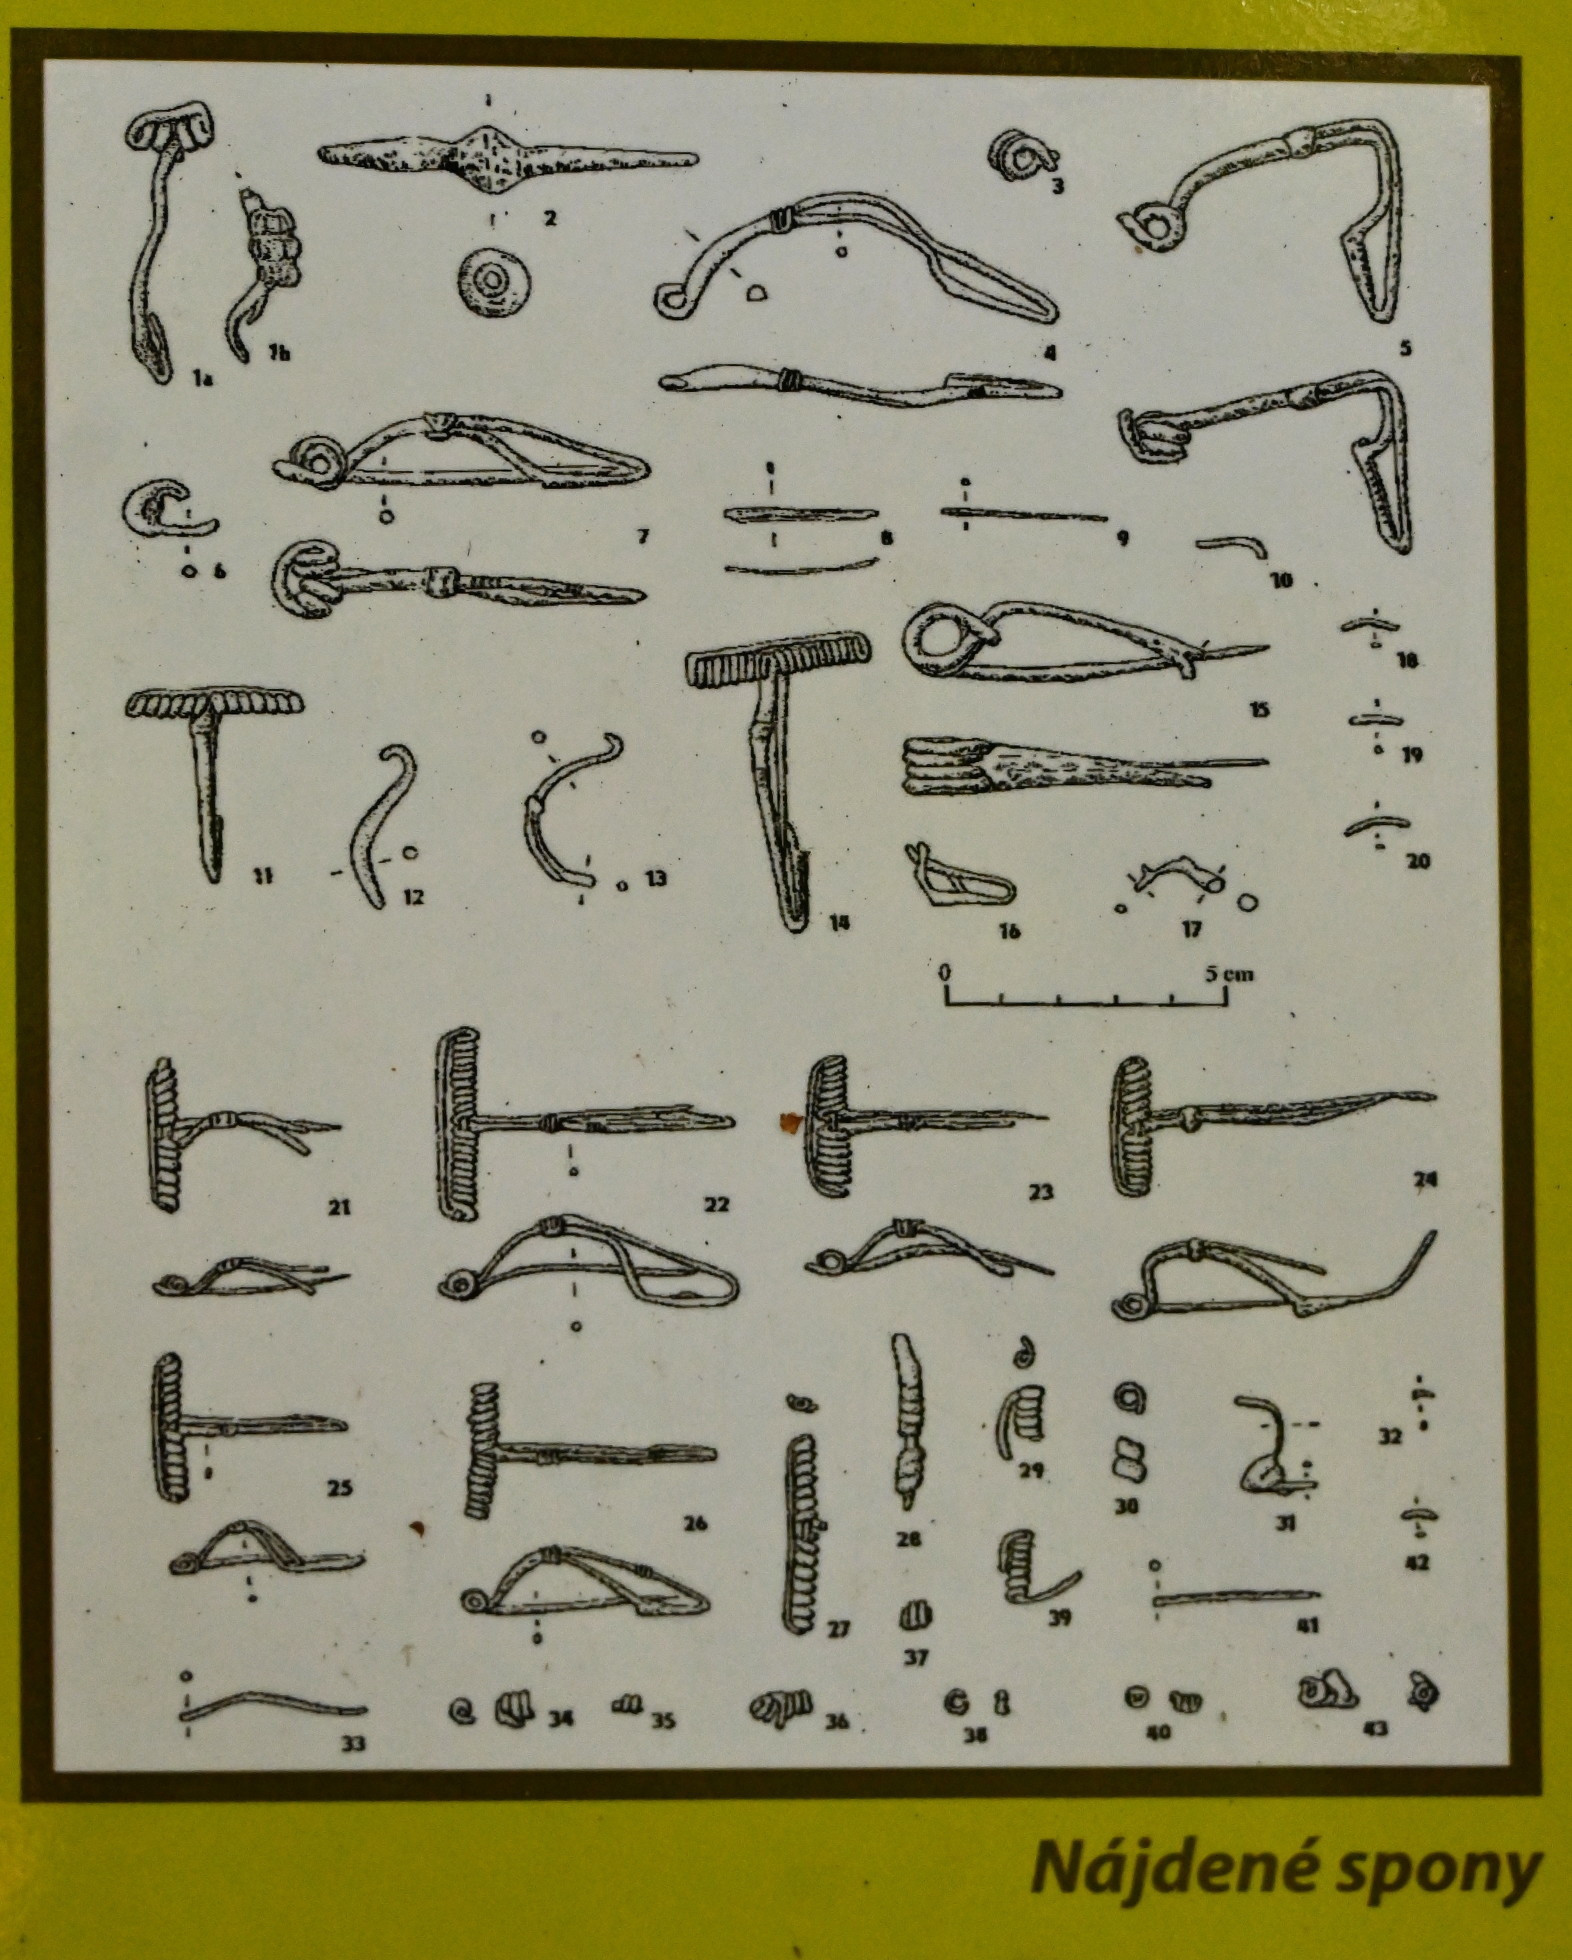 1a
1b
2
3
4
5
6
7
8
9
10
11
12
13
14
15
16
17
18
19
20
0 5 cm
21
22
23
24
25
26
27
28
29
30
31
32
33
34
35
36
37
38
39
40
41
42
43
Nájdené spony